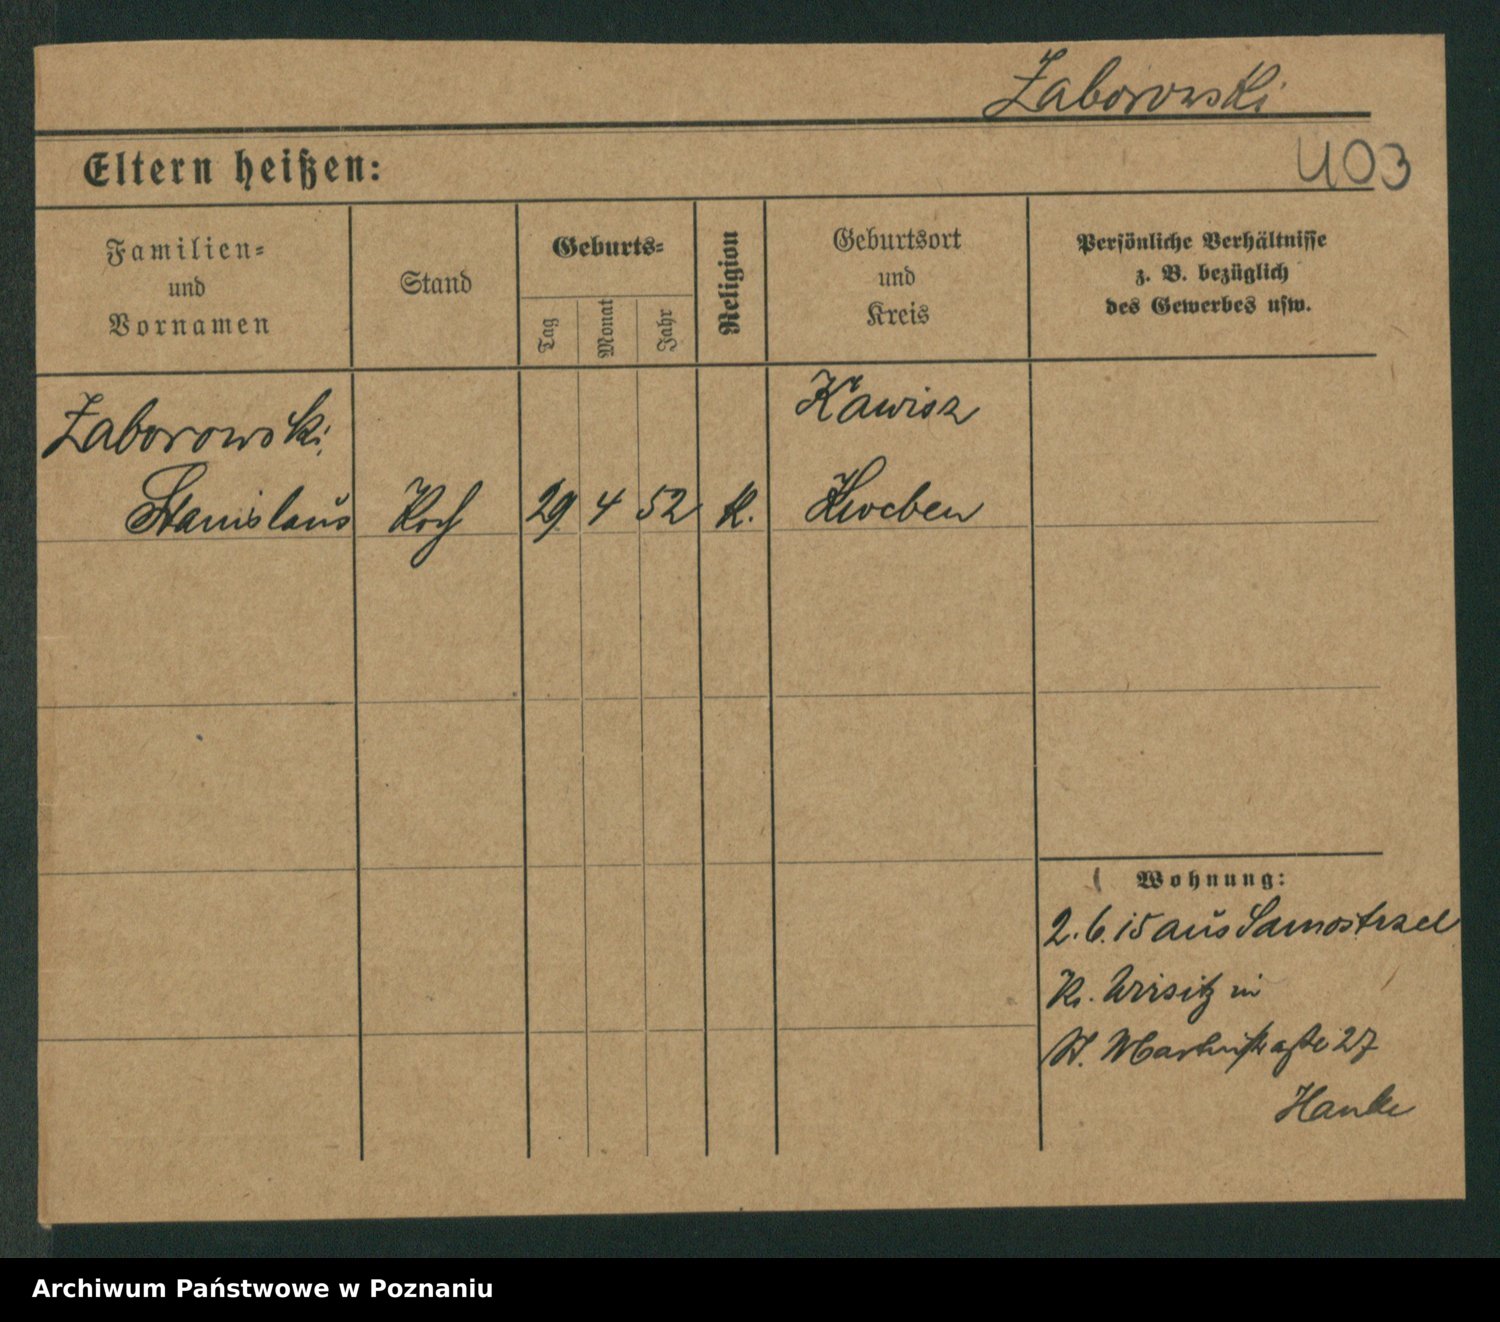 Zaborowski
403
Eltern heißen:
Familien-
und
Vornamen
Stand
Geburts-
Tag
Monat
Jahr
Religion
Geburtsort
und
Kreis
Persönliche Verhältnisse
z. B. bezüglich
des Gewerbes usw.
Zaborowski
Stanislaus
Koch
29
4
52
k.
Wohnung:
2. 6. 15 aus Samostrzel
Kr. Wirsitz in
St. Martinstraße 27
Hanke
Archiwum Państwowe w Poznaniu